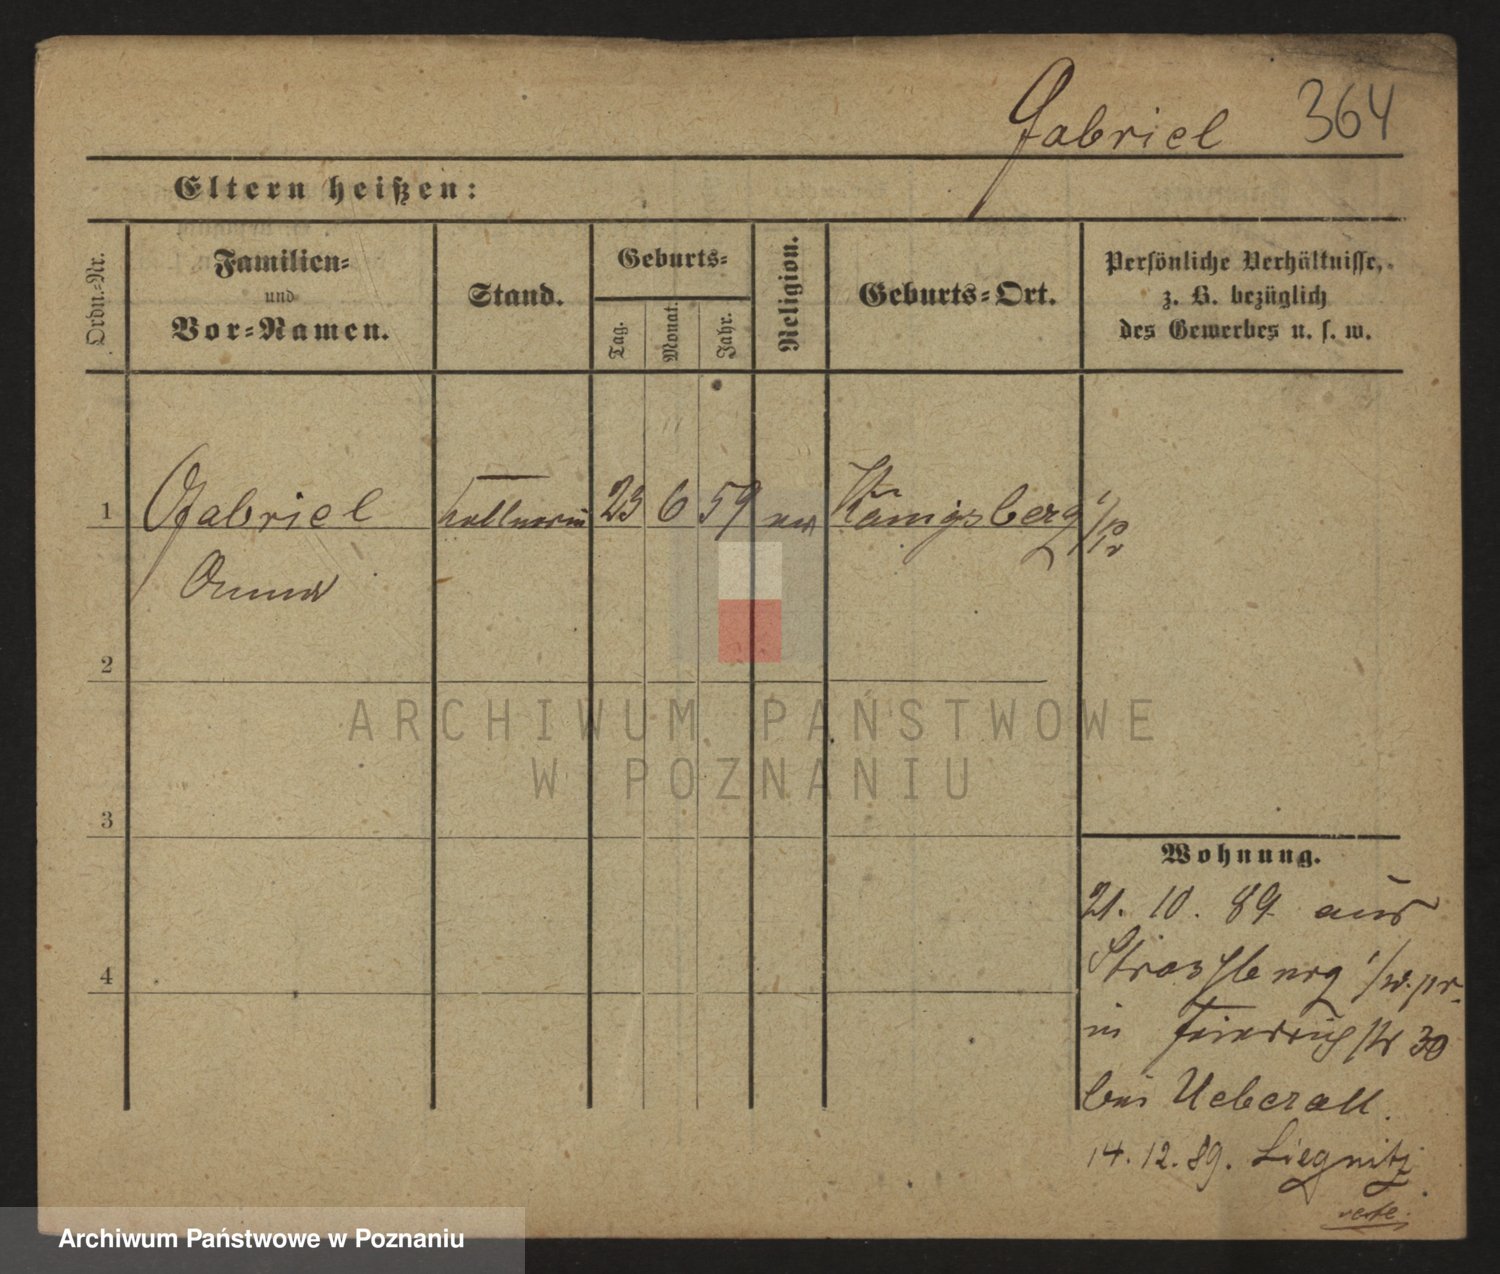 Gabriel 364
Eltern heißen:
Ordn.-Nr.
Familien-
und
Vor-Namen.
Stand.
Geburts-
Tag.
Monat.
Jahr.
Religion.
Geburts-Ort.
Persönliche Verhältnisse,
z. B. bezüglich
des Gewerbes u. s. w.
1 Gabriel Kellnerin 23 6 59 ev Königsberg i/Pr
Anna
2
ARCHIWUM PAŃSTWOWE
W POZNANIU
3
Wohnung.
21. 10. 89 aus
Strassburg i/w.pr.
in Friedrichstr 30
bei Ueberall.
4
14.12.89. Liegnitz
Archiwum Państwowe w Poznaniu